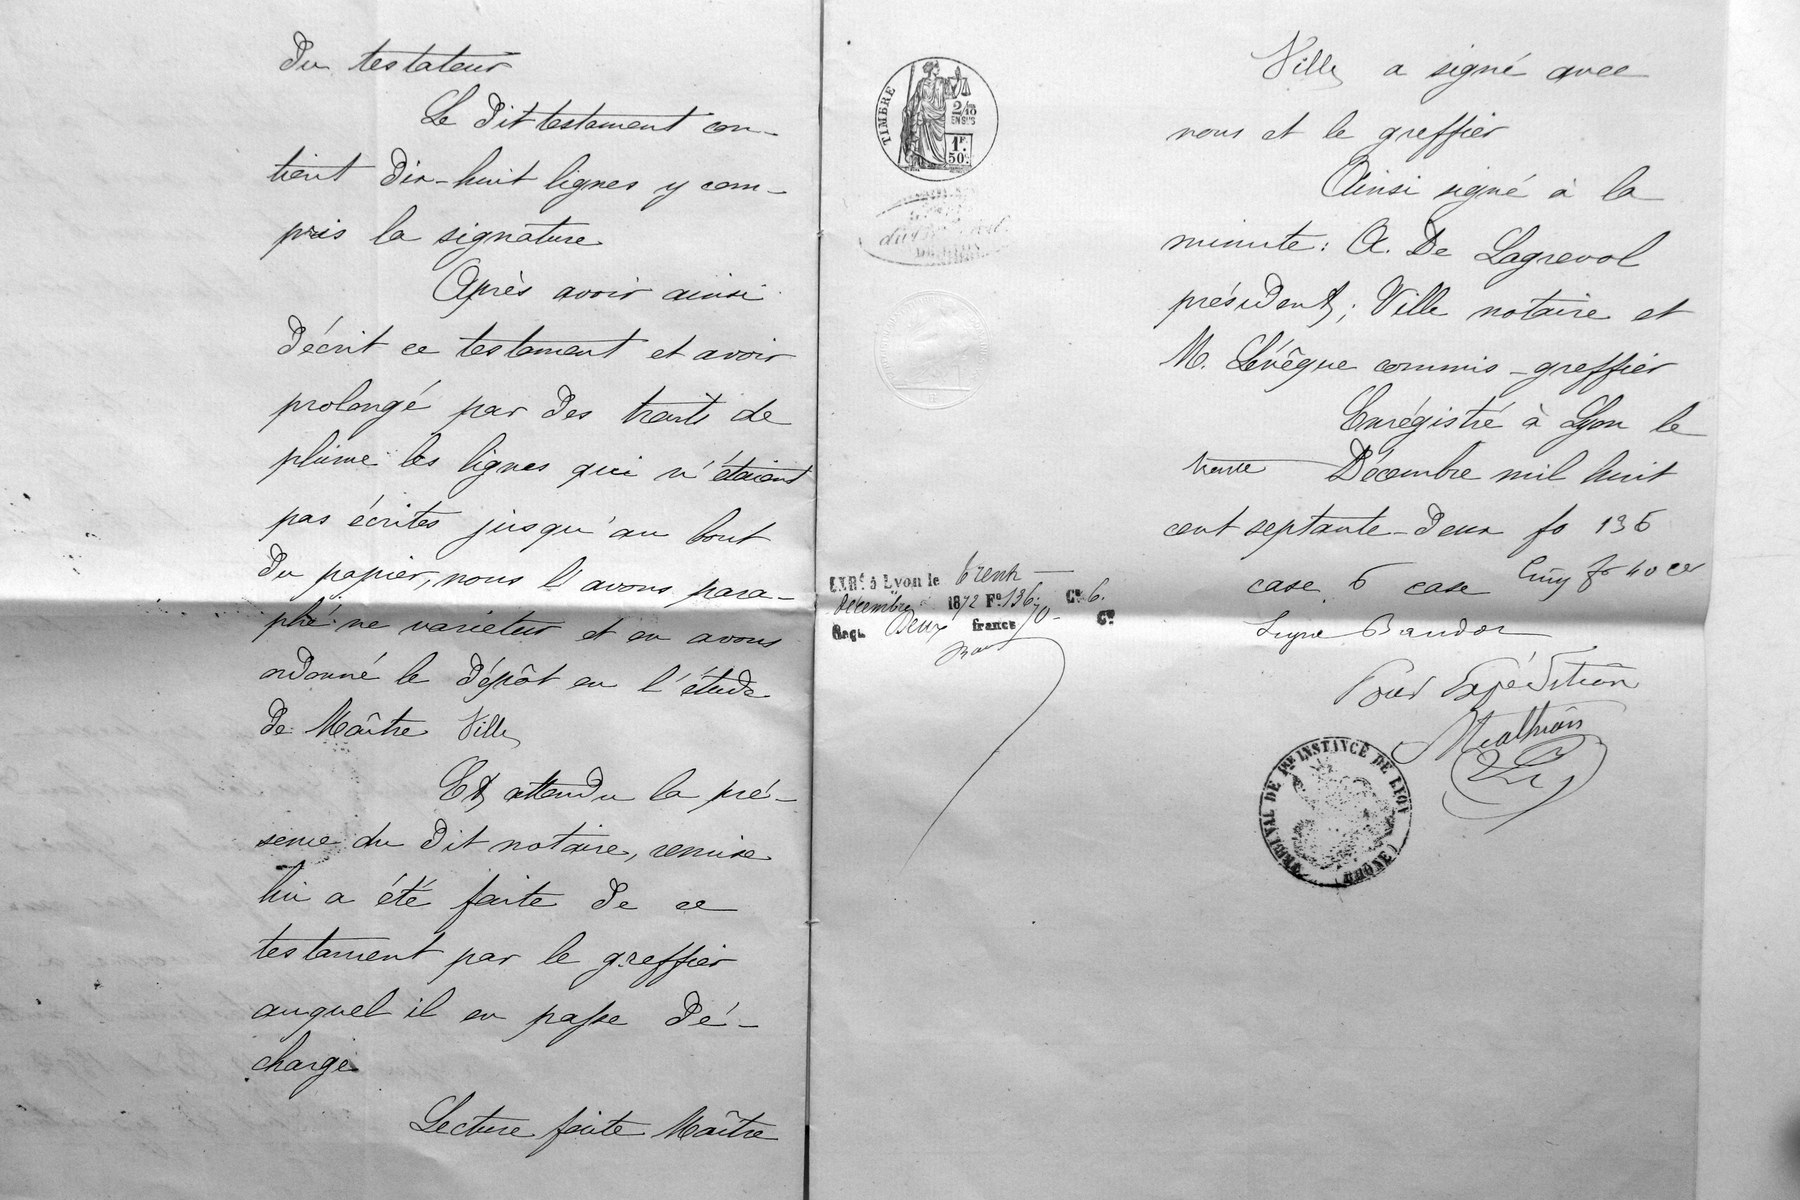 du testateur
Le dit testament con-
tient dix-huit lignes y com-
pris la signature
Après avoir ainsi
décrit ce testament et avoir
prolongé par des traits de
plume les lignes qui n'étaient
pas écrites jusqu'au bout
du papier, nous l'avons para-
phé ne varietur et en avons
ordonné le dépôt en l'étude
de Maître Ville
Et attendu la pré-
sence du dit notaire, remise
lui a été faite de ce
testament par le greffier
auquel il en passe dé-
charge
Lecture faite Maître
TIMBRE
2/10
EN SUS
1F.
50c.
Enr.é à Lyon le trente
décembre 1872 Fo. 136. Ce. 6.
Reçu Deux francs 70 Ces
Ville a signé avec
nous et le greffier
Ainsi signé à la
minute: A. De Lagrevol
président; Ville notaire et
M. Lévêque commis-greffier
Enrégistré à Lyon le
trente Décembre mil huit
cent septante-deux fo 136
case 6 case cinq fr 40 ces
Signé
Pour Expédition
TRIBUNAL DE 1RE INSTANCE DE LYON
(RHÔNE)